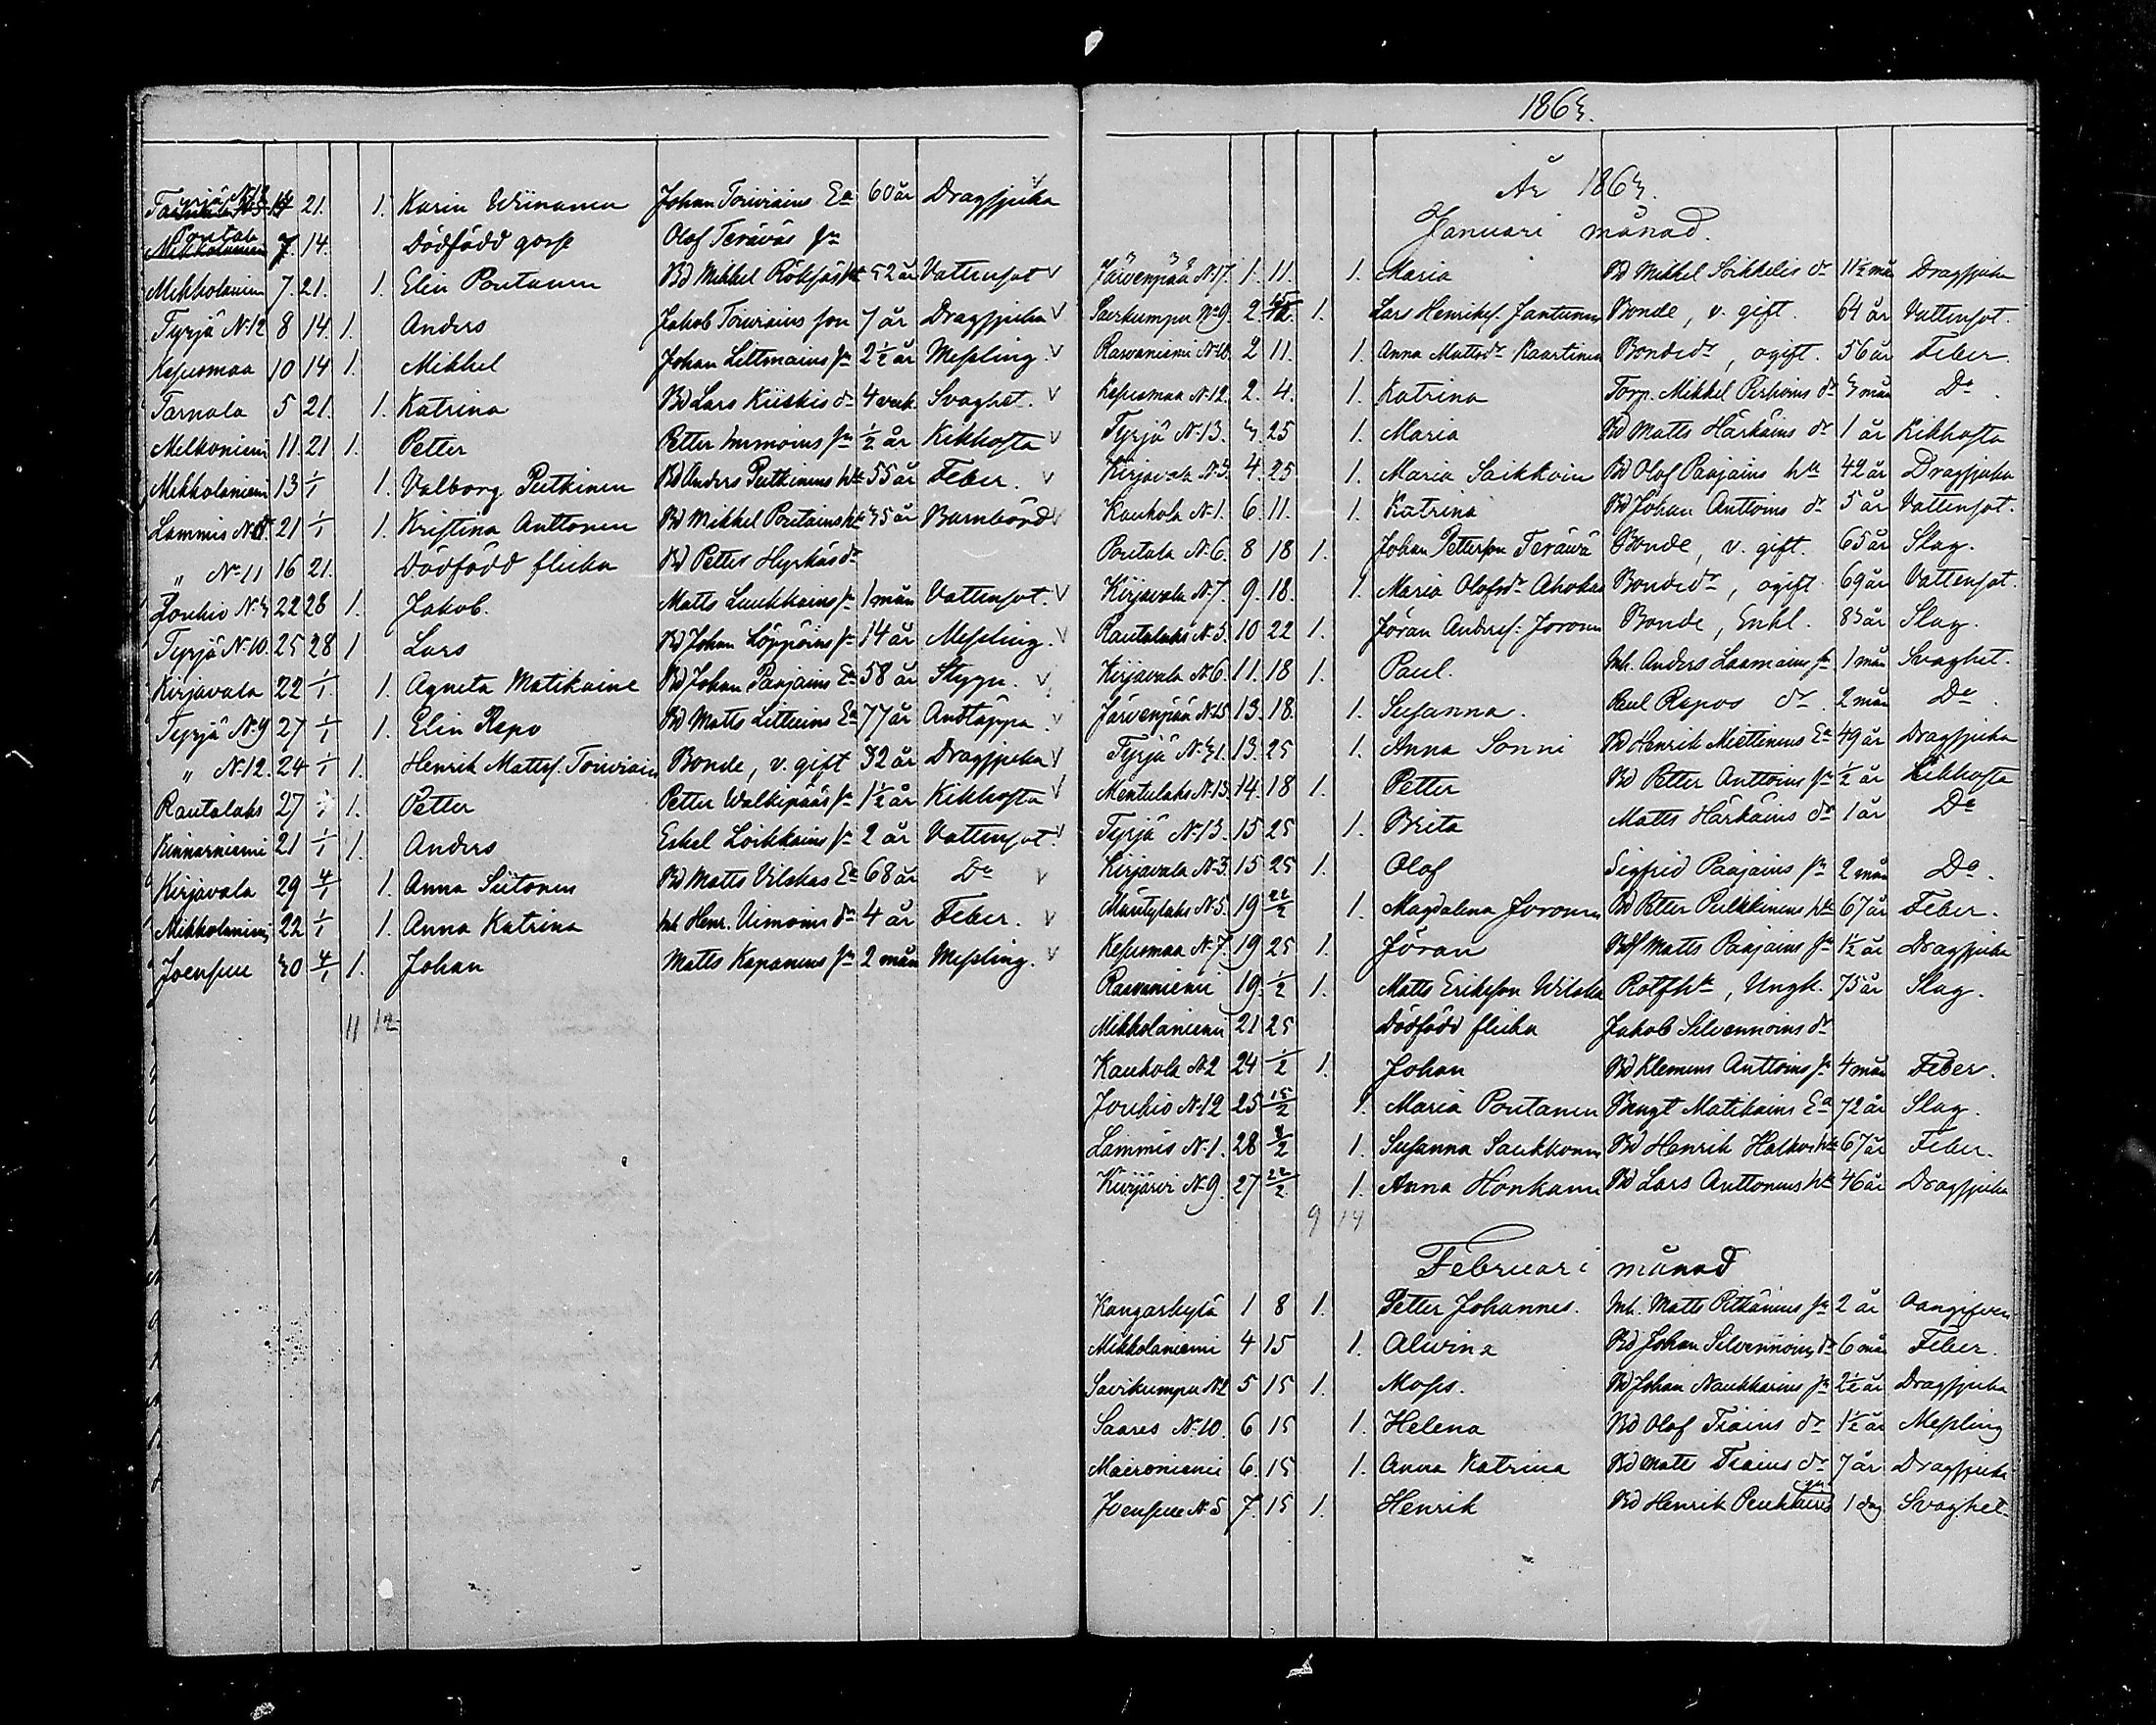 Tyrjä N.12 14 21. 1. Karin Wiinanen Johan Toiviains Ea 60 år Dragsjuka
Poutala 7. 14. Dödfödd gosse Olof Teräväs sn
Mikkolaniemi 7. 21. 1. Elin Poutanen Bd Mikkel Rökjäs hu 52 år Vattensot
Tyrjä N.12 8 14 1. Anders Jakob Toiviains son 7 år Dragsjuka
Kesusmaa 10 14 1. Mikkel Johan Littmains sn 2 1/2 år Messling
Tarnala 5 21. 1. Katrina Bd Lars Kiiskis dr 4 veck. Svaghet.
Melkoniemi 11. 21 1. Petter Petter Immoins sn 1/2 år Kikhosta
Mikkolaniemi 13 1/1 1. Valborg Putkinen Bd Anders Putkinens hu 55 år Feber.
Lammis N.8. 21 1/1 1. Kristina Anttonen Bd Mikkel Poutains hu 35 år Barnbörd
" No 11 16 21. Dödfödd flicka Bd Petter Hyrkäs dr
Joukio N.3 22 28 1. Jakob. Matts Luukkains sn 1 mån Vattensot.
Tyrjä N.10. 25 28 1 Lars Bd Johan Löppöins sn 14 år Messling.
Kirjavala 22 1/1 1. Agneta Matikaine Bd Johan Paajains Ea 58 år Stygn.
Tyrjä N.9 27 1/1 1. Elin Repo Bd Matts Littuins Ea 77 år Andtäppa
" N.12. 24 1/1 1. Henrik Mattss. Toiviain Bonde, v. gift 32 år Dragsjuka
Rautalaks 27 1/1 1. Petter Petter Walkipääs sn 1 1/2 år Kikhosta
Kinnarniemi 21 1/1 1. Anders Eskel Loikkains sn 2 år Vattensot.
Kirjavala 29 4/1 1. Anna Siitonen Bd Matts Vilskas Ea 68 år Do
Mikkolaniemi 22 1/1 1. Anna Katrina Inh Henr. Uimoins dr 4 år Feber.
Joensuu 30 4/1 1. Johan Matts Kapanens sn 2 mån Messling.
11 12
1863.
År 1863.
Januari månad.
Järvenpää N.17. 1. 11. 1. Maria Bd Mikkel Soikkelis dr 11 1/2 mån Dragsjuka
Saerkumpu No 9. 2. 1. Lars Henrikss. Jantunen Bonde, v. gift. 64 år Vattensot.
Rasvaniemi N.20. 2 11. 1. Anna Mattsdr Kaartinen Bondedr, ogift. 56 år Feber.
Kesusmaa N.12. 2. 4. 1. Katrina Torp. Mikkel Pirhoins dr 3 mån Do.
Tyrjä N.13. 3. 25 1. Maria Bd Matts Härkäins dr 1 år Kikhosta
Kirjavala N.3. 4. 25 1. Maria Saikkoin Bd Olof Paajains hu 42 år Dragsjuka
Kaukola N.1. 6. 11. 1. Katrina Bd Johan Anttoins dr 5 år Vattensot.
Poutala N.6. 8 18 1. Johan Petterson Teräwä Bonde, v. gift. 65 år Slag.
Kirjavala N.7. 9. 18. 1. Maria Olofsdr Ahokas Bondedr, ogift 69 år Vattensot.
Rautalaks N.3. 10 22 1. Jöran Anderss. Joronen Bonde, Enkl. 83 år Slag.
Kirjavala N.6. 11. 18 1. Paul. Inh. Anders Laamains sn 1 mån Svaghet.
Järvenpää N.25. 13. 18. 1. Susanna. Paul Repos dr. 2 mån Do.
Tyrjä N.31. 13. 25 1. Anna Sonni Bd Henrik Miettinens Ea 49 år Dragsjuka
Mentulaks N.13. 14. 18 1. Petter Bd Petter Anttoins sn 1/2 år Kikhosta
Tyrjä N.13. 15 25 1. Brita Matts Härkäins dr 1 år Do
Kirjavala N.3. 15 25 1. Olof Sigfrid Paajains sn 2 mån Do.
Mäntylaks N.5. 19 22/2 1. Magdalena Joronen Bd Petter Pulkkinens hu 67 år Feber.
Kesusmaa N.7. 19 25 1. Jöran Matts Paajains sn 1 1/2 år Dragsjuka
Rasvaniemi 19. 1/2 1. Matts Eriksson Wilska Rotfhn, Ungk. 75 år Slag.
Mikkolaniemi 21 25 Dödfödd flicka Jakob Silvennoins dr
Kaukola N.2 24 1/2 1. Johan Bd Klemens Anttoins sn 4 mån Feber.
Joukio N.12 25 15/2 1. Maria Poutanen Bengt Matikains Ea 72 år Slag.
Lammis N.1. 28 8/2 1. Susanna Saukkonen Bd Henrik Halkos hu 67 år Feber.
Kivijärvi N.9. 27 22/2 1. Anna Honkanen Bd Lars Anttonens hu 46 år Dragsjuka
9 14
Februari månad
Kangaskylä 1 8 1. Petter Johannes. Inh. Matts Pitkänens sn 2 år Oangifven
Mikkolaniemi 4 15 1. Alwina Bd Johan Silvennoins dr 6 mån Feber.
Savikumpu N.2 5 15 1. Moses. Bd Johan Naukkarins sn 2 1/2 år Dragsjuka
Saares N.10. 6 15 1. Helena Bd Olof Tiains dr 1 1/2 år Messling
Maironiemi 6. 15 1. Anna Katrina Bd Matts Tiains dr 7 år Dragsjuka
Joensuu N.5 7. 15 1. Henrik Bd Henrik Peukkuris sn 1 dag Svaghet.